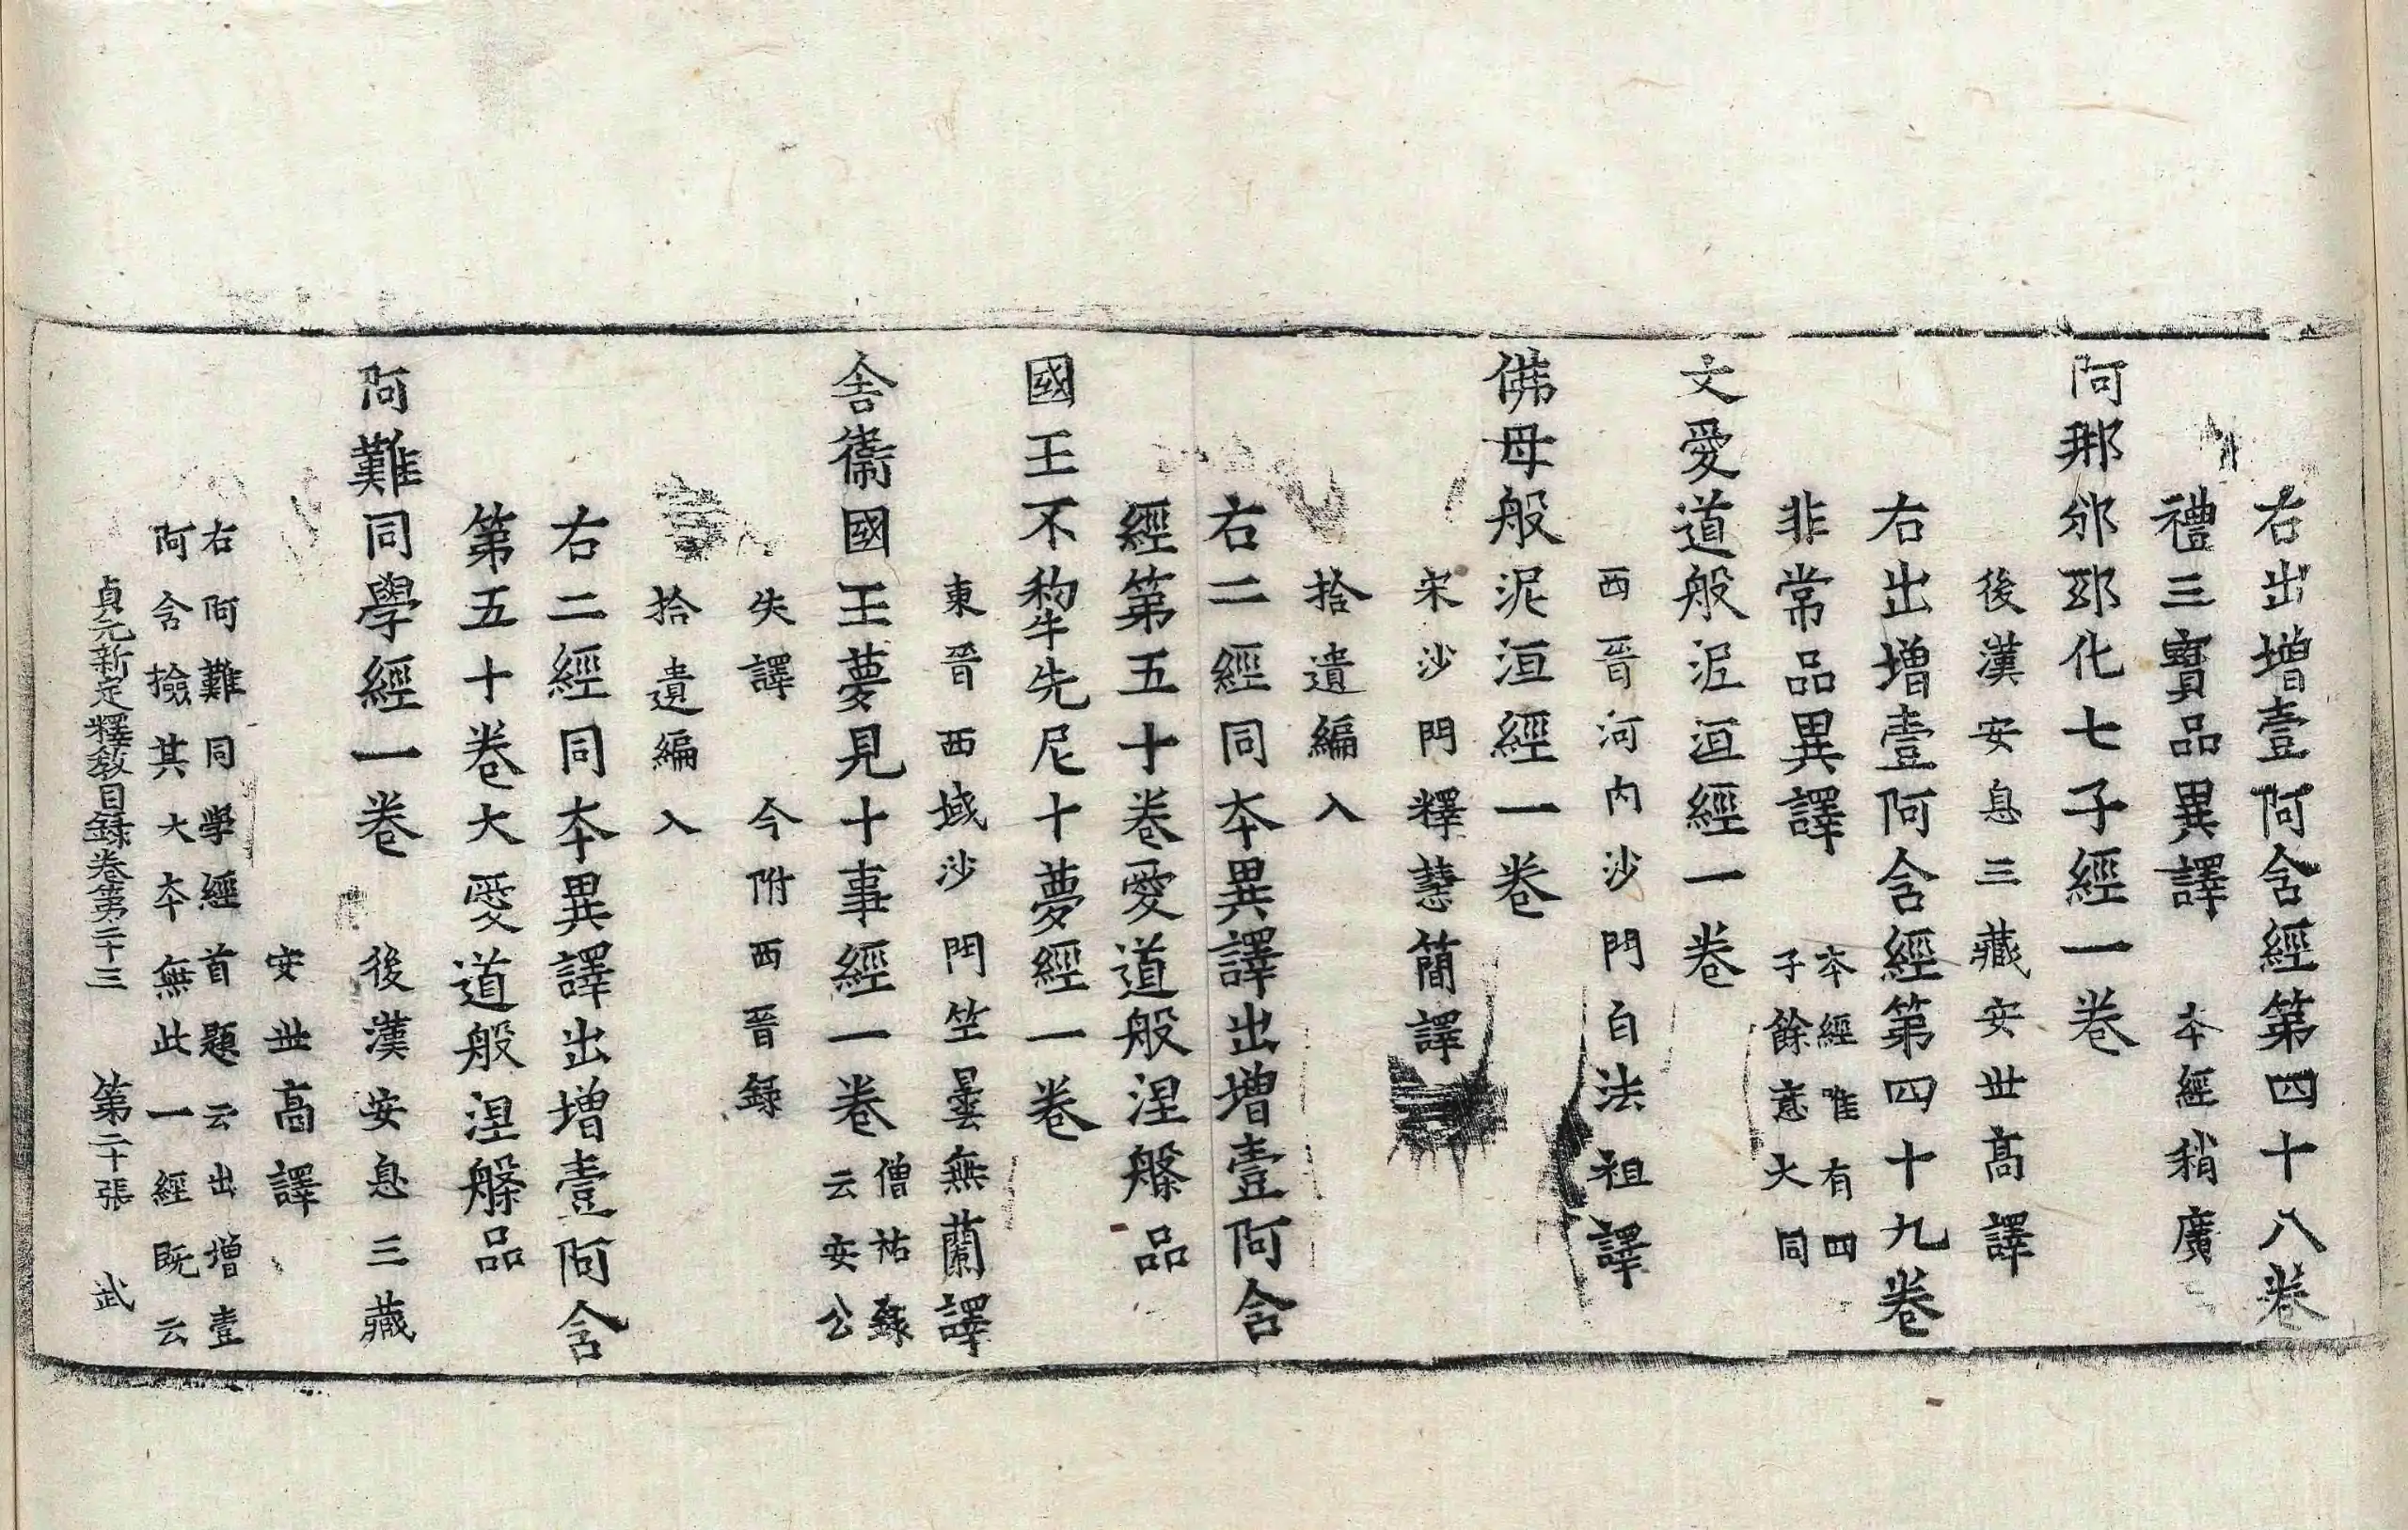 右出增壹阿含經第四十八卷
禮三寶品異譯 本經稍廣
阿那邠邸化七子經一卷
後漢安息三藏安世高譯
右出增壹阿含經第四十九卷
非常品異譯 本經唯有四
子餘意大同
大愛道般泥洹經一卷
西晉河內沙門白法祖譯
佛母般泥洹經一卷
宋沙門釋慧簡譯
拾遺編入
右二經同本異譯出增壹阿含
經第五十卷愛道般涅槃品
國王不犁先尼十夢經一卷
東晉西域沙門竺曇無蘭譯
舍衞國王夢見十事經一卷 僧祐錄
云安公
失譯 今附西晉錄
拾遺編入
右二經同本異譯出增壹阿含
第五十卷大愛道般涅槃品
阿難同學經一卷 後漢安息三藏
安世高譯
右阿難同學經首題云出增壹
阿含撿其大本無此一經既云
貞元新定釋教目錄卷第二十三 第二十張 武